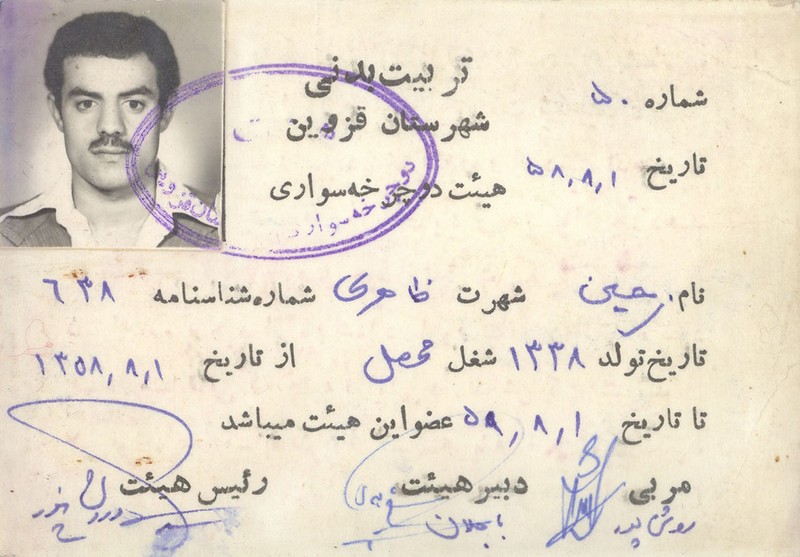 تربیت بدنی
شهرستان قزوین
هیئت دوچرخه‌سواری
شماره ۵۰
تاریخ ۵۸،۸،۱
نام: حسین شهرت طاهری شماره شناسنامه ۶۳۸
تاریخ تولد ۱۳۳۸ شغل محصل از تاریخ ۱۳۵۸،۸،۱
تا تاریخ ۵۹،۸،۱ عضو این هیئت میباشد
مربی دبیر هیئت رئیس هیئت